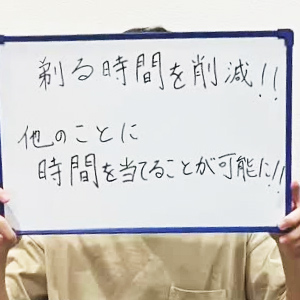 剃る時間を削減!!
他のことに
時間を当てることが可能に!!